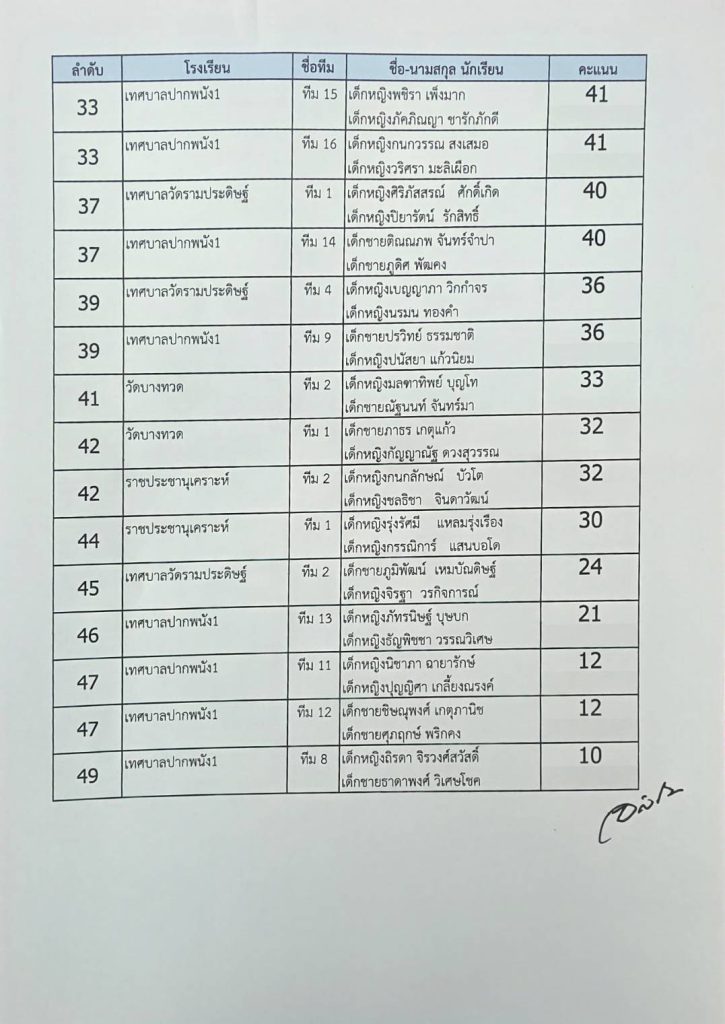 ลำดับ โรงเรียน ชื่อทีม ชื่อ-นามสกุล นักเรียน คะแนน
33 เทศบาลปากพนัง1 ทีม 15 เด็กหญิงพชิรา เพ็งมาก 41
เด็กหญิงภัคภิณญา ชารักภักดี
33 เทศบาลปากพนัง1 ทีม 16 เด็กหญิงกนกวรรณ สงเสมอ 41
เด็กหญิงวริศรา มะลิเผือก
37 เทศบาลวัดรามประดิษฐ์ ทีม 1 เด็กหญิงศิริภัสสรณ์ ศักดิ์เกิด 40
เด็กหญิงปิยารัตน์ รักสิทธิ์
37 เทศบาลปากพนัง1 ทีม 14 เด็กชายติณณภพ จันทร์จำปา 40
เด็กชายภูดิศ พัฒคง
39 เทศบาลวัดรามประดิษฐ์ ทีม 4 เด็กหญิงเบญญาภา วิกกำจร 36
เด็กหญิงนรมน ทองคำ
39 เทศบาลปากพนัง1 ทีม 9 เด็กชายปรวิทย์ ธรรมชาติ 36
เด็กหญิงปนัสยา แก้วนิยม
41 วัดบางทวด ทีม 2 เด็กหญิงมลฑาทิพย์ บุญโท 33
เด็กชายณัฐนนท์ จันทร์มา
42 วัดบางทวด ทีม 1 เด็กชายภาธร เกตุแก้ว 32
เด็กหญิงกัญญาณัฐ ดวงสุวรรณ
42 ราชประชานุเคราะห์ ทีม 2 เด็กหญิงกนกลักษณ์ บัวโต 32
เด็กหญิงชลธิชา จินดาวัฒน์
44 ราชประชานุเคราะห์ ทีม 1 เด็กหญิงรุ่งรัศมี แหลมรุ่งเรือง 30
เด็กหญิงกรรณิการ์ แสนบอโด
45 เทศบาลวัดรามประดิษฐ์ ทีม 2 เด็กชายภูมิพัฒน์ เหมบัณดิษฐ์ 24
เด็กหญิงจิรฐา วรกิจการณ์
46 เทศบาลปากพนัง1 ทีม 13 เด็กหญิงภัทรนิษฐ์ บุษบก 21
เด็กหญิงธัญพิชชา วรรณวิเศษ
47 เทศบาลปากพนัง1 ทีม 11 เด็กหญิงนิชาภา ฉายารักษ์ 12
เด็กหญิงปุญญิศา เกลี้ยงณรงค์
47 เทศบาลปากพนัง1 ทีม 12 เด็กชายชิษณุพงศ์ เกตุภานิช 12
เด็กชายศุภฤกษ์ พริกคง
49 เทศบาลปากพนัง1 ทีม 8 เด็กหญิงถิรดา จิรวงศ์สวัสดิ์ 10
เด็กชายธาดาพงศ์ วิเศษโชค